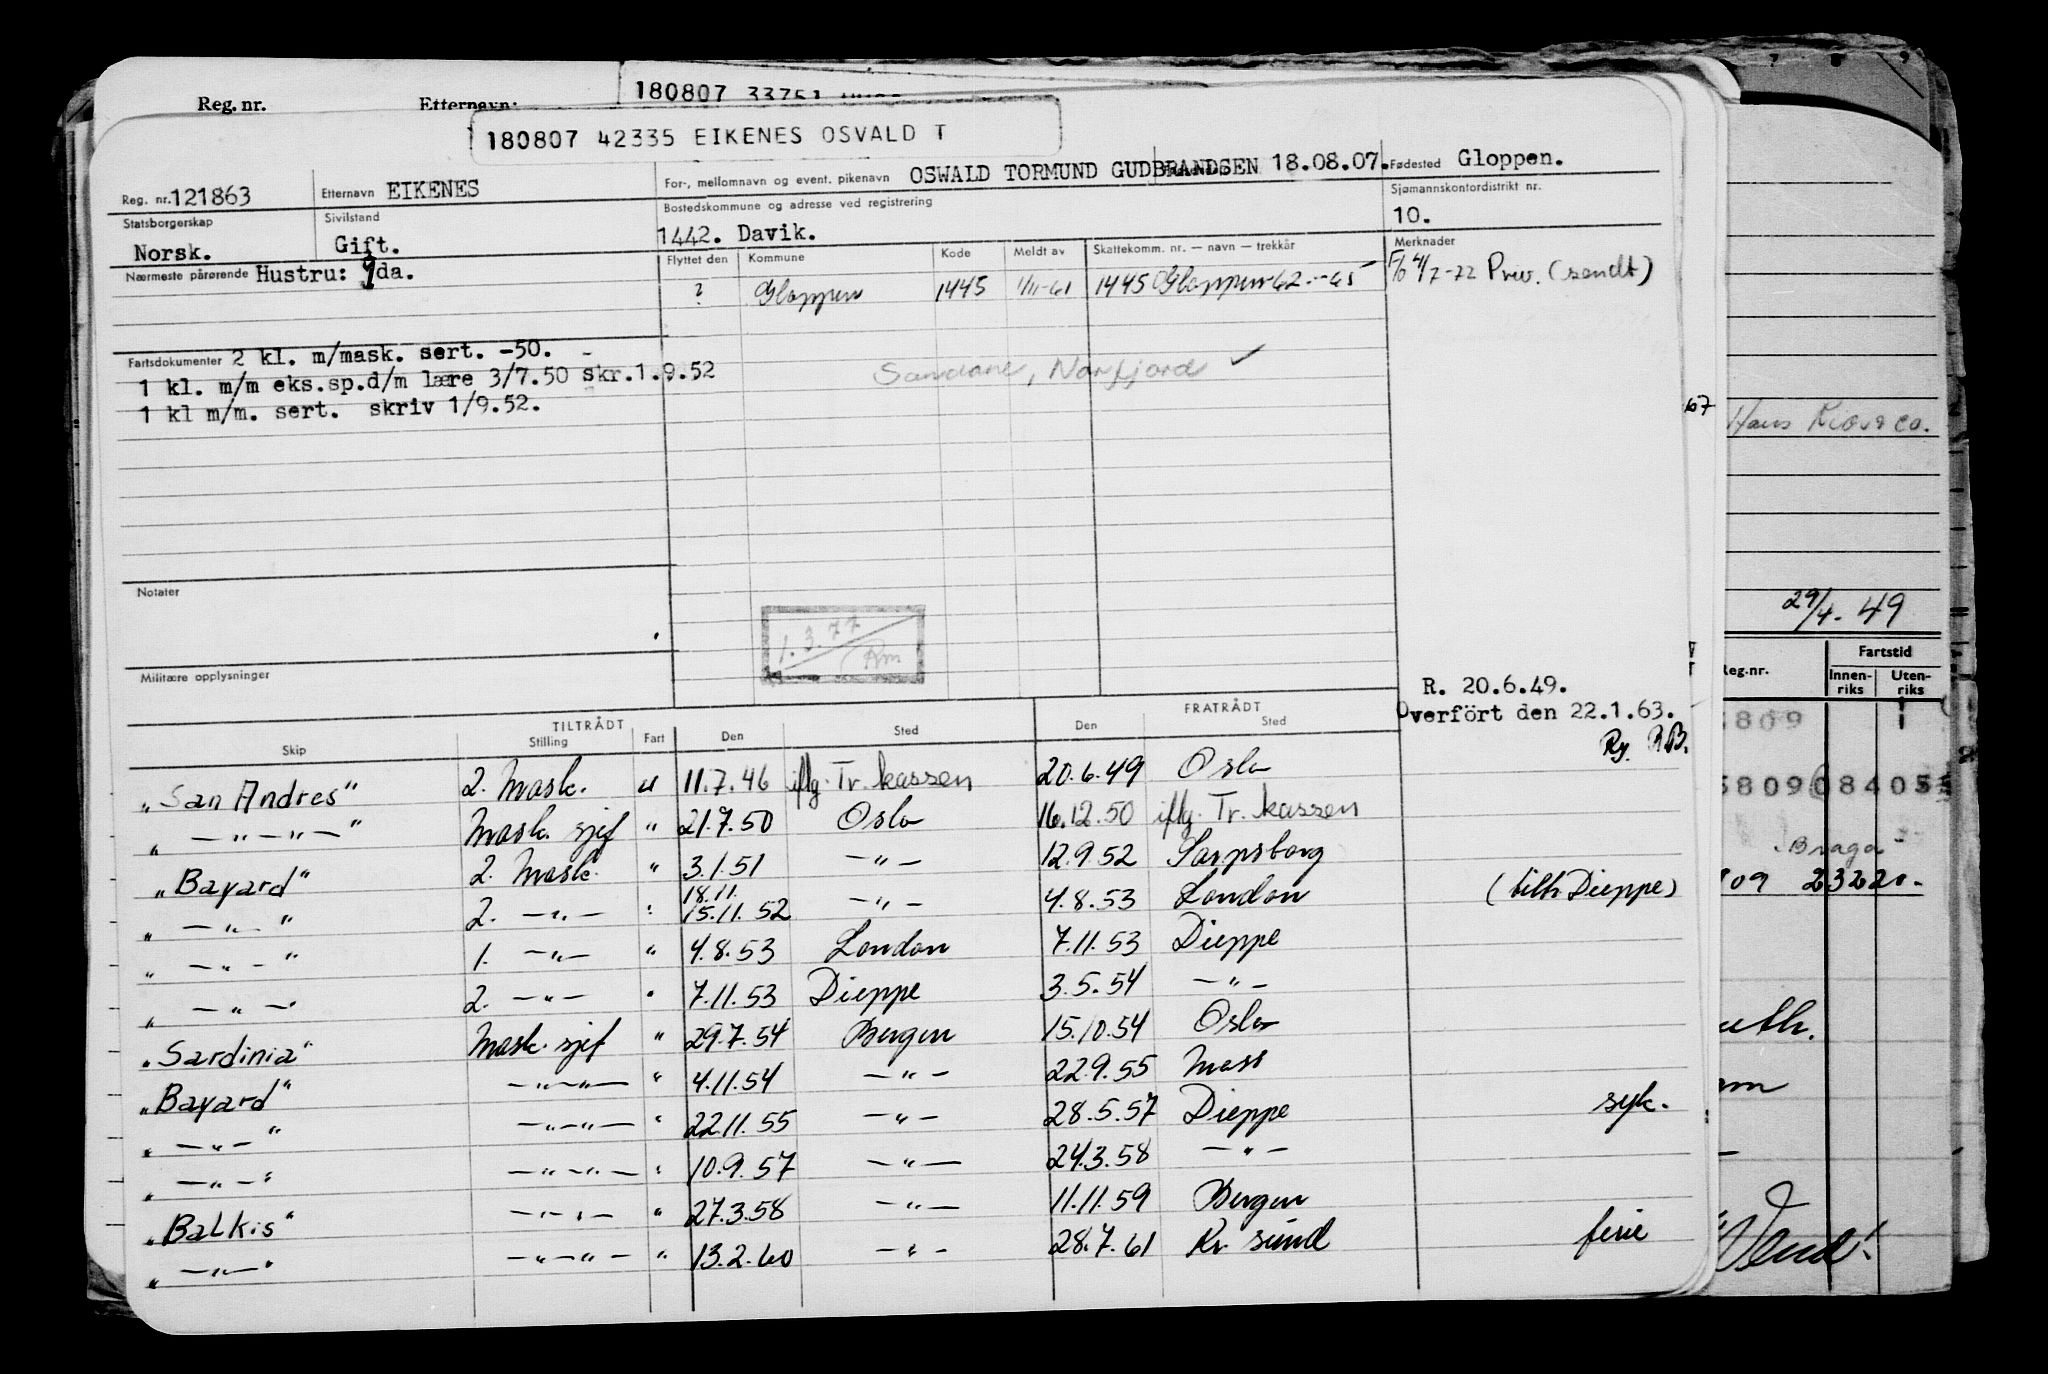 Reg. nr. Etternavn: 180807 33751
180807 42335 EIKENES OSVALD T
Reg. nr. 121863 Etternavn EIKENES For-, mellomnavn og event. pikenavn OSWALD TORMUND GUDBRANDSEN 18.08.07. Fødested Gloppen.
Statsborgerskap Norsk. Sivilstand Gift. Bostedskommune og adresse ved registrering 1442. Davik. Sjømannskontordistrikt nr. 10.
Nærmeste pårørende Hustru: Ida. Flyttet den Kommune Kode Meldt av Skattekomm. nr. — navn — trekkår Merknader
? Gloppen 1445 1/11-61 1445 Gloppen 62 - 65 F/o 4/7-72 Priv. (sendt)
Fartsdokumenter 2 kl. m/mask. sert. -50.
1 kl. m/m eks.sp.d/m lære 3/7.50 skr.1.9.52
1 kl m/m. sert. skriv 1/9.52.
Sandane, Nordfjord ✓
67
Notater
1.3.77
Rm
Militære opplysninger
R. 20.6.49.
Overfört den 22.1.63.
Ry. R.B.
TILTRÅDT FRATRÅDT
Skip Stilling Fart Den Sted Den Sted
"San Andres" 2. Mask. u 11.7.46 iflg. Tr. kassen 20.6.49 Oslo
" — " — " — " Mask. sjef " 21.7.50 Oslo 16.12.50 iflg. Tr. kassen
"Bayard" 2. Mask. " 3.1.51 — " — 12.9.52 Sarpsborg
18.11.
" — " — " 2. — " — " 15.11.52 — " — 4.8.53 London (tilh. Dieppe)
" — " — " 1. — " — " 4.8.53 London 7.11.53 Dieppe
" — " — " 2. — " — " 7.11.53 Dieppe 3.5.54 — " —
"Sardinia" Mask. sjef " 29.7.54 Bergen 15.10.54 Oslo
"Bayard" — " — " — " 4.11.54 — " — 22.9.55 Moss
" — " — " — " — " — " 22.11.55 — " — 28.5.57 Dieppe syk.
" — " — " — " — " — " 10.9.57 — " — 24.3.58 — " —
"Balkis" — " — " — " 27.3.58 — " — 11.11.59 Bergen
" — " — " — " — " — " 13.2.60 — " — 28.7.61 Kr. sund ferie
Hans Kiær & Co.
29/4-49
Reg.nr. Fartstid
Innenriks Utenriks
809
5809084055
"Braga"
109 23220.-
Vend!